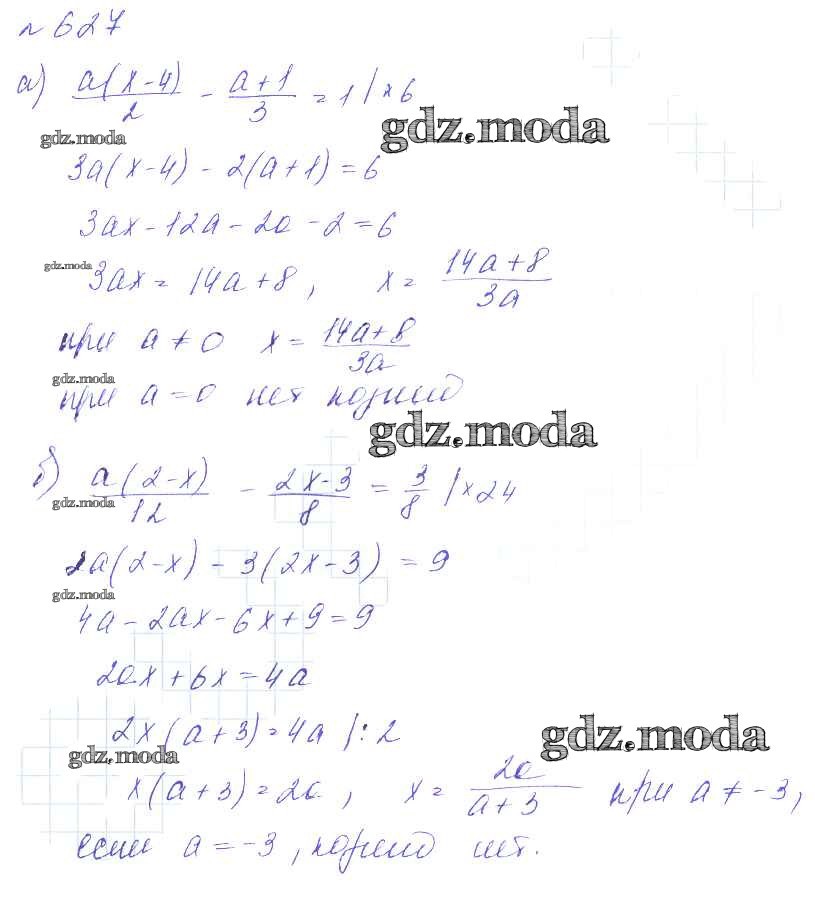 № 627
а) a(x-4)/2 - (a+1)/3 = 1 |×6
gdz.moda gdz.moda
3a(x-4) - 2(a+1) = 6
3ax - 12a - 2a - 2 = 6
gdz.moda
3ax = 14a + 8, x = (14a+8)/3a
при a ≠ 0 x = (14a+8)/3a
gdz.moda
при a = 0 нет корней
gdz.moda
б) a(2-x)/12 - (2x-3)/8 = 3/8 |×24
gdz.moda
2a(2-x) - 3(2x-3) = 9
gdz.moda
4a - 2ax - 6x + 9 = 9
2ax + 6x = 4a
2x(a+3) = 4a |:2
gdz.moda gdz.moda
x(a+3) = 2a, x = 2a/(a+3) при a ≠ -3,
если a = -3, корней нет.